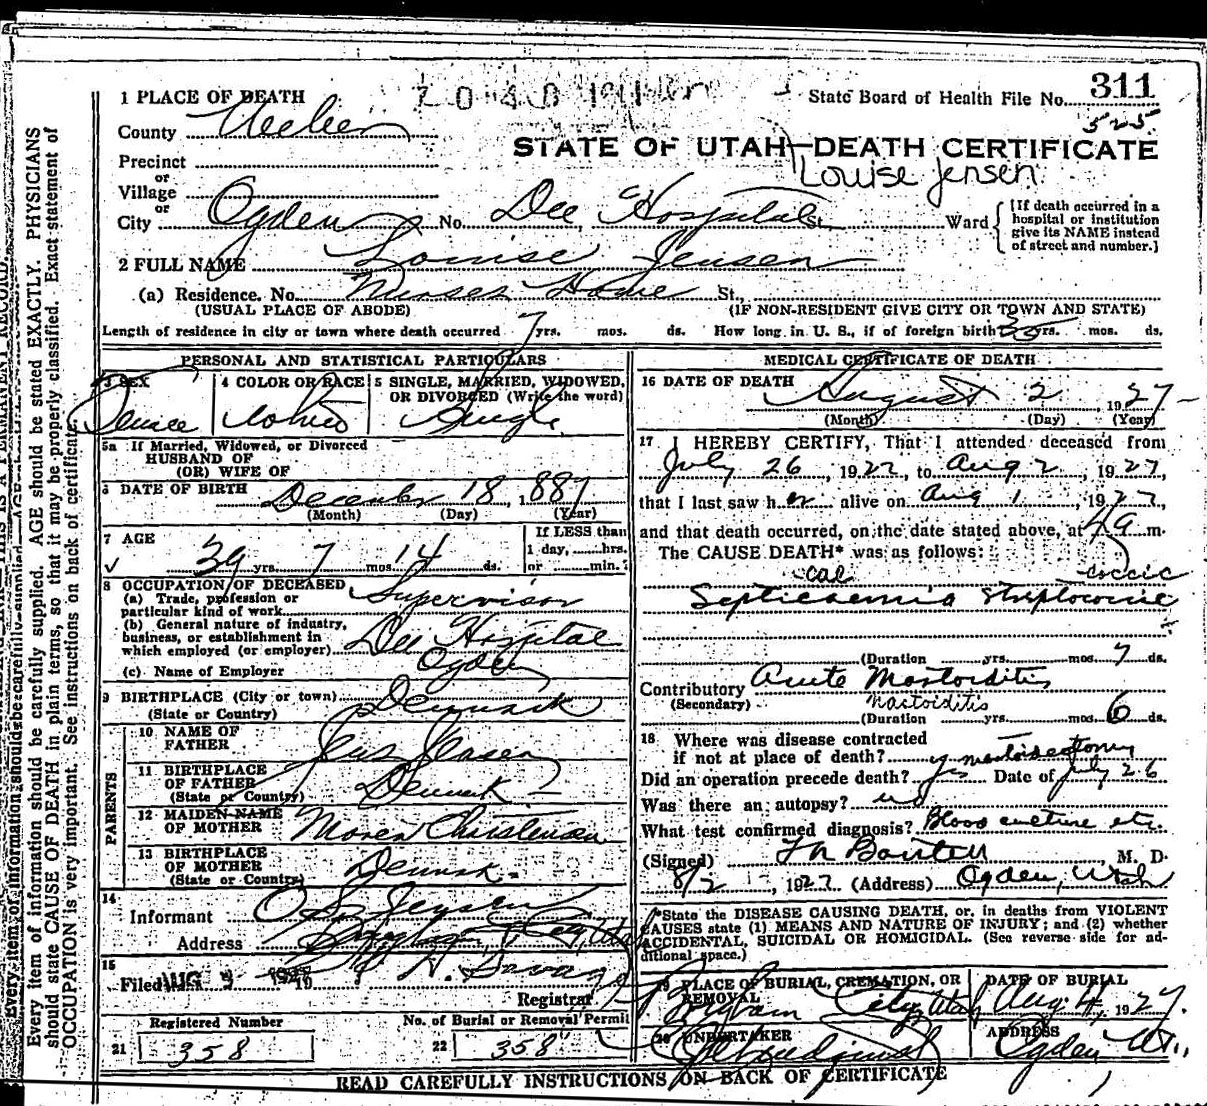 311
State Board of Health File No.
525
1 PLACE OF DEATH
County Weber
STATE OF UTAH—DEATH CERTIFICATE
Louise Jensen
Precinct
or
Village
or
City Ogden No. Dee Hospital St. Ward
[If death occurred in a hospital or institution give its NAME instead of street and number.]
2 FULL NAME Louise Jensen
(a) Residence. No. Nurses Home St.,
(USUAL PLACE OF ABODE) (IF NON-RESIDENT GIVE CITY OR TOWN AND STATE)
Length of residence in city or town where death occurred 7 yrs. mos. ds. How long in U. S., if of foreign birth 35 yrs. mos. ds.
PERSONAL AND STATISTICAL PARTICULARS
3 SEX
4 COLOR OR RACE White
5 SINGLE, MARRIED, WIDOWED, OR DIVORCED (Write the word) Single
5a If Married, Widowed, or Divorced
HUSBAND OF
(OR) WIFE OF
6 DATE OF BIRTH December 18, 1887
(Month) (Day) (Year)
7 AGE 39 yrs. 7 mos. 14 ds.
If LESS than
1 day, hrs.
or min.
8 OCCUPATION OF DECEASED
(a) Trade, profession or
particular kind of work Supervisor
(b) General nature of industry,
business, or establishment in
which employed (or employer) Dee Hospital
Ogden
(c) Name of Employer
9 BIRTHPLACE (City or town) Denmark
(State or Country)
PARENTS
10 NAME OF
FATHER Jens Jensen
11 BIRTHPLACE
OF FATHER
(State or Country) Denmark
12 MAIDEN NAME
OF MOTHER Maren Christensen
13 BIRTHPLACE
OF MOTHER
(State or Country) Denmk.
14
Informant O S Jensen
Address Brigham City, Utah
15
Filed AUG 3 1927
Registrar
Registered Number
21 358
No. of Burial or Removal Permit
22 358
MEDICAL CERTIFICATE OF DEATH
16 DATE OF DEATH August 2 1927
(Month) (Day) (Year)
17 I HEREBY CERTIFY, That I attended deceased from
July 26, 1927, to Aug 2, 1927,
that I last saw her alive on Aug 1, 1927,
and that death occurred, on the date stated above, at m.
The CAUSE DEATH* was as follows:
cal coccic
Septicaemia Streptococcic
(Duration yrs. mos. 7 ds.
Contributory Acute Mastoiditis
(Secondary) Mastoiditis
(Duration yrs. mos. 6 ds.
18 Where was disease contracted
if not at place of death?
mastoidectomy
Did an operation precede death? yes Date of July 26
Was there an autopsy? no
What test confirmed diagnosis? Blood culture etc.
(Signed) M. D.
8/2, 1927 (Address) Ogden, Utah
*State the DISEASE CAUSING DEATH, or, in deaths from VIOLENT
CAUSES state (1) MEANS AND NATURE OF INJURY; and (2) whether
ACCIDENTAL, SUICIDAL OR HOMICIDAL. (See reverse side for ad-
ditional space.)
19 PLACE OF BURIAL, CREMATION, OR
REMOVAL
Brigham City, Utah
DATE OF BURIAL
Aug. 4, 1927.
20 UNDERTAKER
ADDRESS
Ogden Ut.,
READ CAREFULLY INSTRUCTIONS ON BACK OF CERTIFICATE
Every item of information should be carefully supplied. AGE should be stated EXACTLY. PHYSICIANS
should state CAUSE OF DEATH in plain terms, so that it may be properly classified. Exact statement of
OCCUPATION is very important. See instructions on back of certificate.